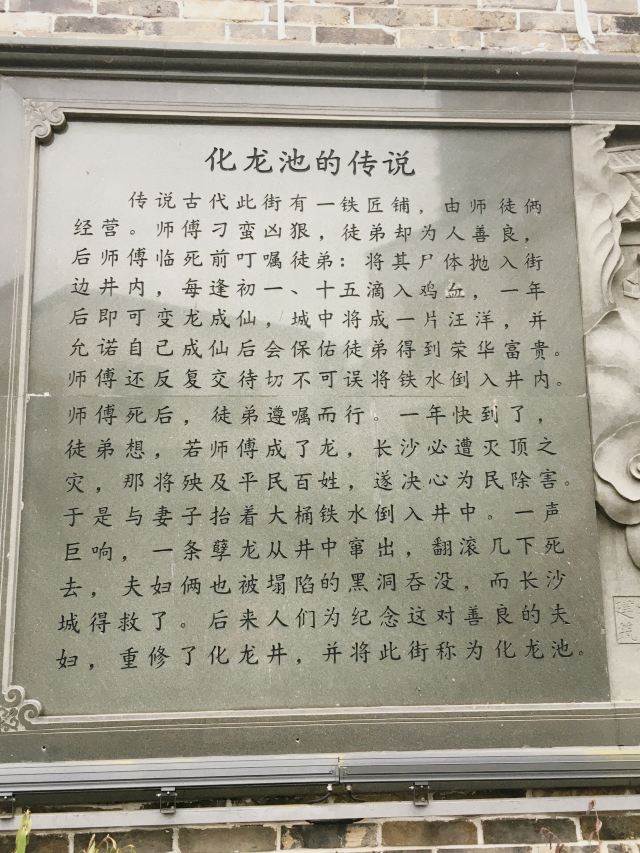 化龙池的传说
传说古代此街有一铁匠铺，由师徒俩
经营。师傅刁蛮凶狠，徒弟却为人善良，
后师傅临死前叮嘱徒弟：将其尸体抛入街
边井内，每逢初一、十五滴入鸡血，一年
后即可变龙成仙，城中将成一片汪洋，并
允诺自己成仙后会保佑徒弟得到荣华富贵。
师傅还反复交待切不可误将铁水倒入井内。
师傅死后，徒弟遵嘱而行。一年快到了，
徒弟想，若师傅成了龙，长沙必遭灭顶之
灾，那将殃及平民百姓，遂决心为民除害。
于是与妻子抬着大桶铁水倒入井中。一声
巨响，一条孽龙从井中窜出，翻滚几下死
去，夫妇俩也被塌陷的黑洞吞没，而长沙
城得救了。后来人们为纪念这对善良的夫
妇，重修了化龙井，并将此街称为化龙池。